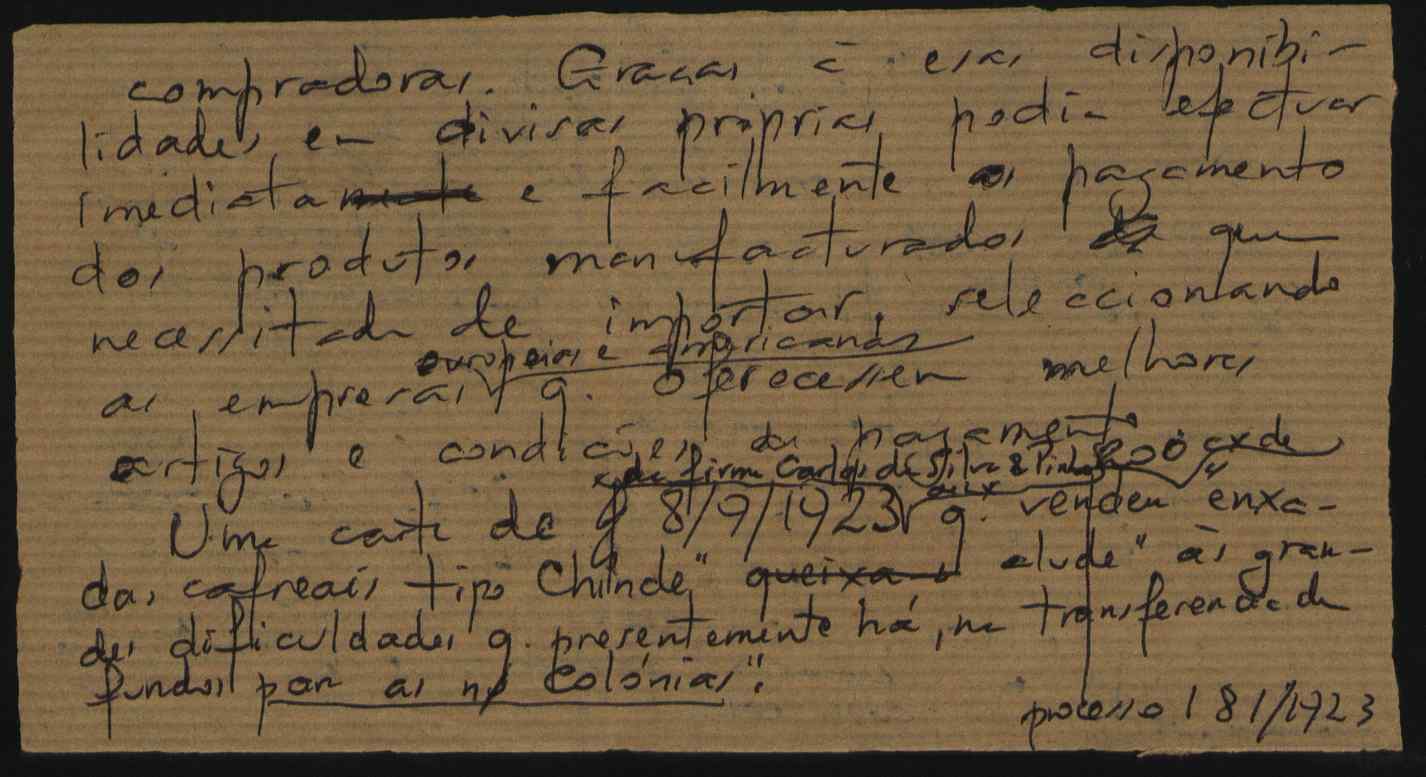 compradoras. Graças à esas disponibi-
lidades em divisas próprias podia efectuar
imediata e facilmente o pagamento
dos produtos manufacturados que
necessitada de importar, seleccionando
europeias e americanas
as empresas q. oferecessem melhores
artigos e condições de pagamento
da firma Carlos da Silva & Pinho 200 cx de
Uma carta de 8/9/1923 q. vendeu "enxa-
das cafreais tipo Chinde" queixa alude "às gran-
des dificuldades q. presentemente há, na transferencia de
fundos par as ns Colónias".
processo 181/1923